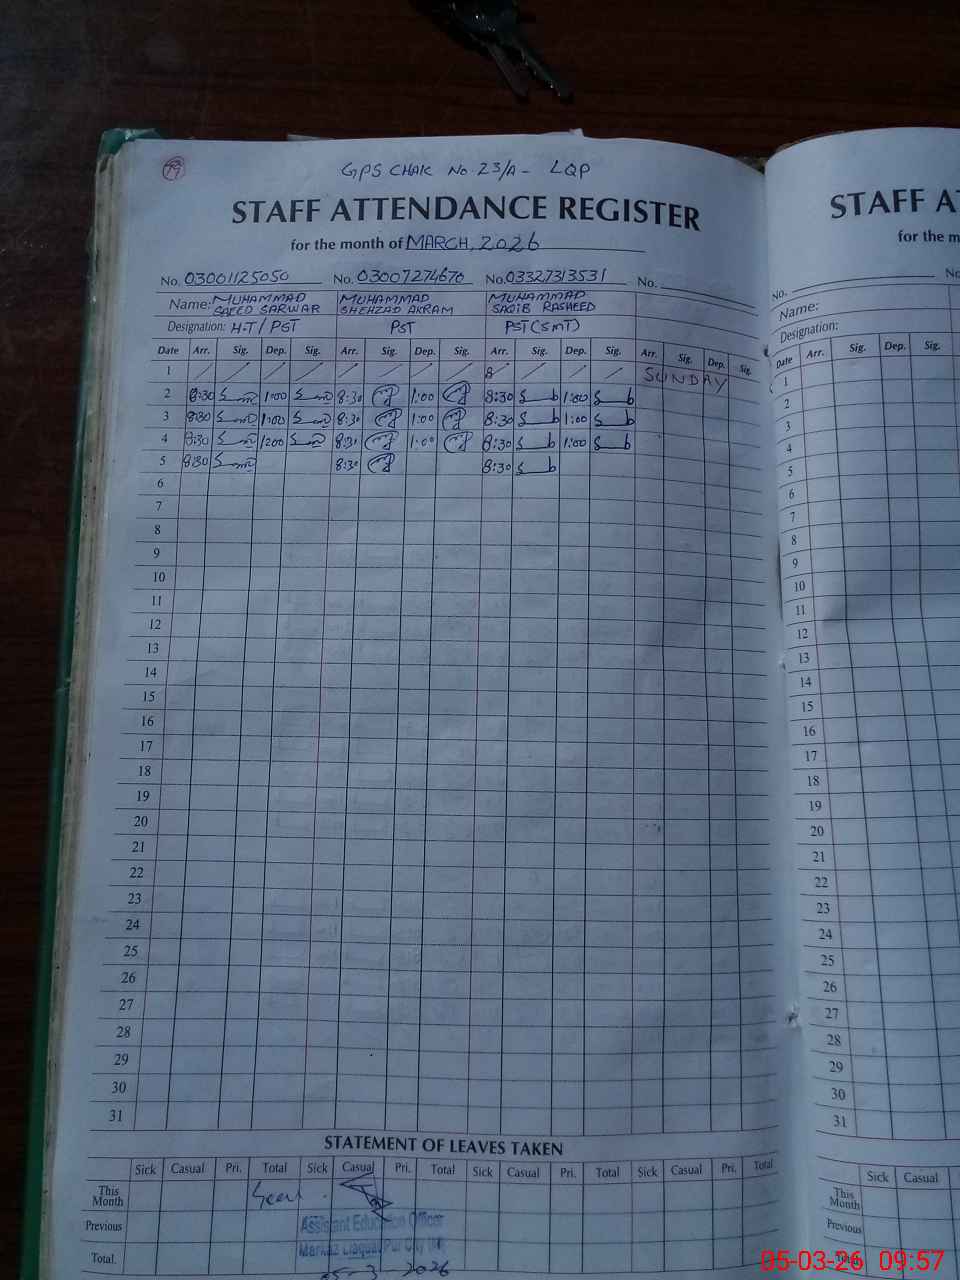 19
GPS CHAK No 23/A - LQP
STAFF ATTENDANCE REGISTER
for the month of MARCH, 2026
No. 03001125050 No. 03007274670 No. 03327313531 No.
Name: MUHAMMAD SAEED SARWAR MUHAMMAD SHEHZAD AKRAM MUHAMMAD SAQIB RASHEED
Designation: H-T/PST PST PST(SMT)
Date Arr. Sig. Dep. Sig. Arr. Sig. Dep. Sig. Arr. Sig. Dep. Sig. Arr. Sig. Dep. Sig.
1 SUNDAY
2 8:30 1:00 8:30 1:00 8:30 1:00
3 8:30 1:00 8:30 1:00 8:30 1:00
4 8:30 1:00 8:30 1:00 8:30 1:00
5 8:30 8:30 8:30
6
7
8
9
10
11
12
13
14
15
16
17
18
19
20
21
22
23
24
25
26
27
28
29
30
31
STATEMENT OF LEAVES TAKEN
Sick Casual Pri. Total Sick Casual Pri. Total Sick Casual Pri. Total Sick Casual Pri. Total
This Month Seen
Previous
Total.
Assistant Education Officer
Markaz Liaquat Pur City (M)
05-3-2026
STAFF AT
for the m
No. No
Name:
Designation:
Date Arr. Sig. Dep. Sig.
1
2
3
4
5
6
7
8
9
10
11
12
13
14
15
16
17
18
19
20
21
22
23
24
25
26
27
28
29
30
31
Sick Casual
This Month
Previous
Total.
05-03-26 09:57